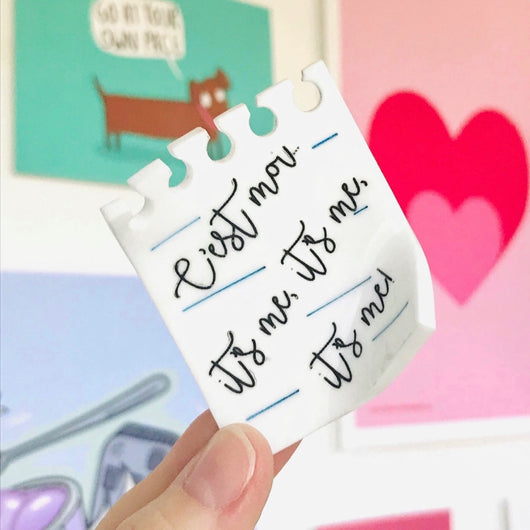 GO AT YOUR
OWN PACE
C'est moi..
it's me, it's me,
it's me!